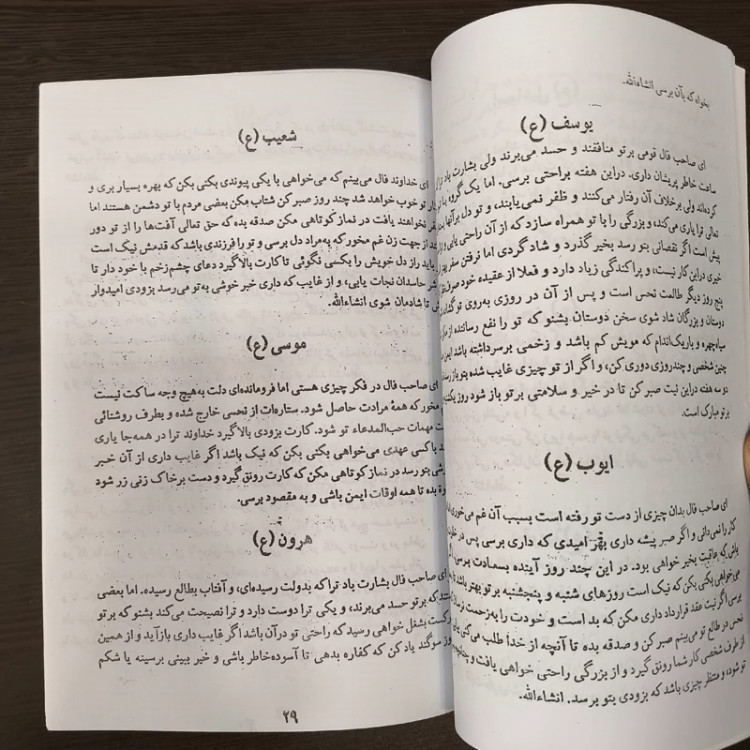 بخواه که بآن برسی انشاءالله.
یوسف (ع)
ای صاحب فال قومی برتو منافقند و حسد می‌برند ولی بشارت باد ترا
ساعت خاطر پریشان داری. دراین هفته براحتی برسی. اما یک‌گروه
کرده‌اند ولی برخلاف آن رفتار می‌کنند و ظفر نمی‌یابند، و تو دل برآنها
تعالی ترا یاری می‌کند، و بزرگی را با تو همراه سازد که از آن راحتی یابی
پیش است اگر نقصانی بتو رسد بخیر گذرد و شاد گردی اما نرفتن سفر
خیری دراین کار نیست، و پراکندگی زیاد دارد و فعلا از عقیده خود
پنج روز دیگر طالعت نحس است و پس از آن در روزی به‌روی تو
دوستان و بزرگان شاد شوی سخن دوستان بشنو که تو را نفع رساننده از
سیاه‌چهره و باریک‌اندام که مویش کم باشد و زخمی برسرداشته باشد
چنین شخصی و چندروزی دوری کن، و اگر از تو چیزی غایب شده بتو
دو سه هفته دراین نیت صبر کن تا در خیر و سلامتی بر تو باز شود روز
برتو مبارک است.
ایوب (ع)
ای صاحب فال بدان چیزی از دست تو رفته است بسبب آن غم می‌خوری
کار را نمی‌دانی و اگر صبر پیشه داری بهر امیدی که داری برسی پس در
باش که عاقبت بخیر خواهی بود. در این چند روز آینده بسعادت برسی
می‌خواهی بکنی بکن که نیک است روزهای شنبه و پنجشنبه برتو بهتر باشد
برسی اگر نیت عقد قرارداد داری مکن که بد است و خودت را به‌زحمت
نحس در طالع تو می‌بینم صبر کن و صدقه بده تا آنچه از خدا طلب می‌کنی
از طرف شخصی کار شما رونق گیرد و از بزرگی راحتی خواهی یافت و
تو شود، و منتظر چیزی باش که بزودی بتو برسد. انشاءالله.
شعیب (ع)
ای خداوند فال می‌بینم که می‌خواهی با یکی پیوندی بکنی بکن که بهره بسیار بری و
تو خوب خواهد شد چند روز صبر کن شتاب مکن بعضی مردم با تو دشمن هستند اما
نخواهند یافت در نماز کوتاهی مکن صدقه بده که حق تعالی آفت‌ها را از تو دور
از جهت زن غم مخور که به‌مراد دل برسی و تو را فرزندی باشد که قدمش نیک است
باید راز دل خویش را بکسی نگوئی تا کارت بالا گیرد دعای چشم‌زخم با خود دار تا
شر حاسدان نجات یابی، و از غایب که داری خبر خوشی به‌تو می‌رسد بزودی امیدوار
تا شادمان شوی انشاءالله.
موسی (ع)
ای صاحب فال در فکر چیزی هستی اما فرومانده‌ای دلت به‌هیچ وجه ساکت نیست
مخور که همهٔ مرادت حاصل شود. ستاره‌ات از نحسی خارج شده و بطرف روشنائی
مهمات حب‌المدعاه تو شود. کارت بزودی بالا گیرد خداوند ترا در همه‌جا یاری
باکسی عهدی می‌خواهی بکنی بکن که نیک باشد اگر غایب داری از آن خبر
بتو رسد در نماز کوتاهی مکن که کارت رونق گیرد و دست برخاک زنی زر شود
بده تا همه اوقات ایمن باشی و به مقصود برسی.
هرون (ع)
ای صاحب فال بشارت باد ترا که بدولت رسیده‌ای، و آفتاب بطالع رسیده. اما بعضی
که برتو حسد می‌برند، و یکی ترا دوست دارد و ترا نصیحت می‌کند بشنو که برتو
بشغل خواهی رسید که راحتی تو درآن باشد اگر غایب داری بازآید و از همین
سوگند یاد کن که کفاره بدهی تا آسوده‌خاطر باشی و خیر ببینی برسینه یا شکم
۲۹